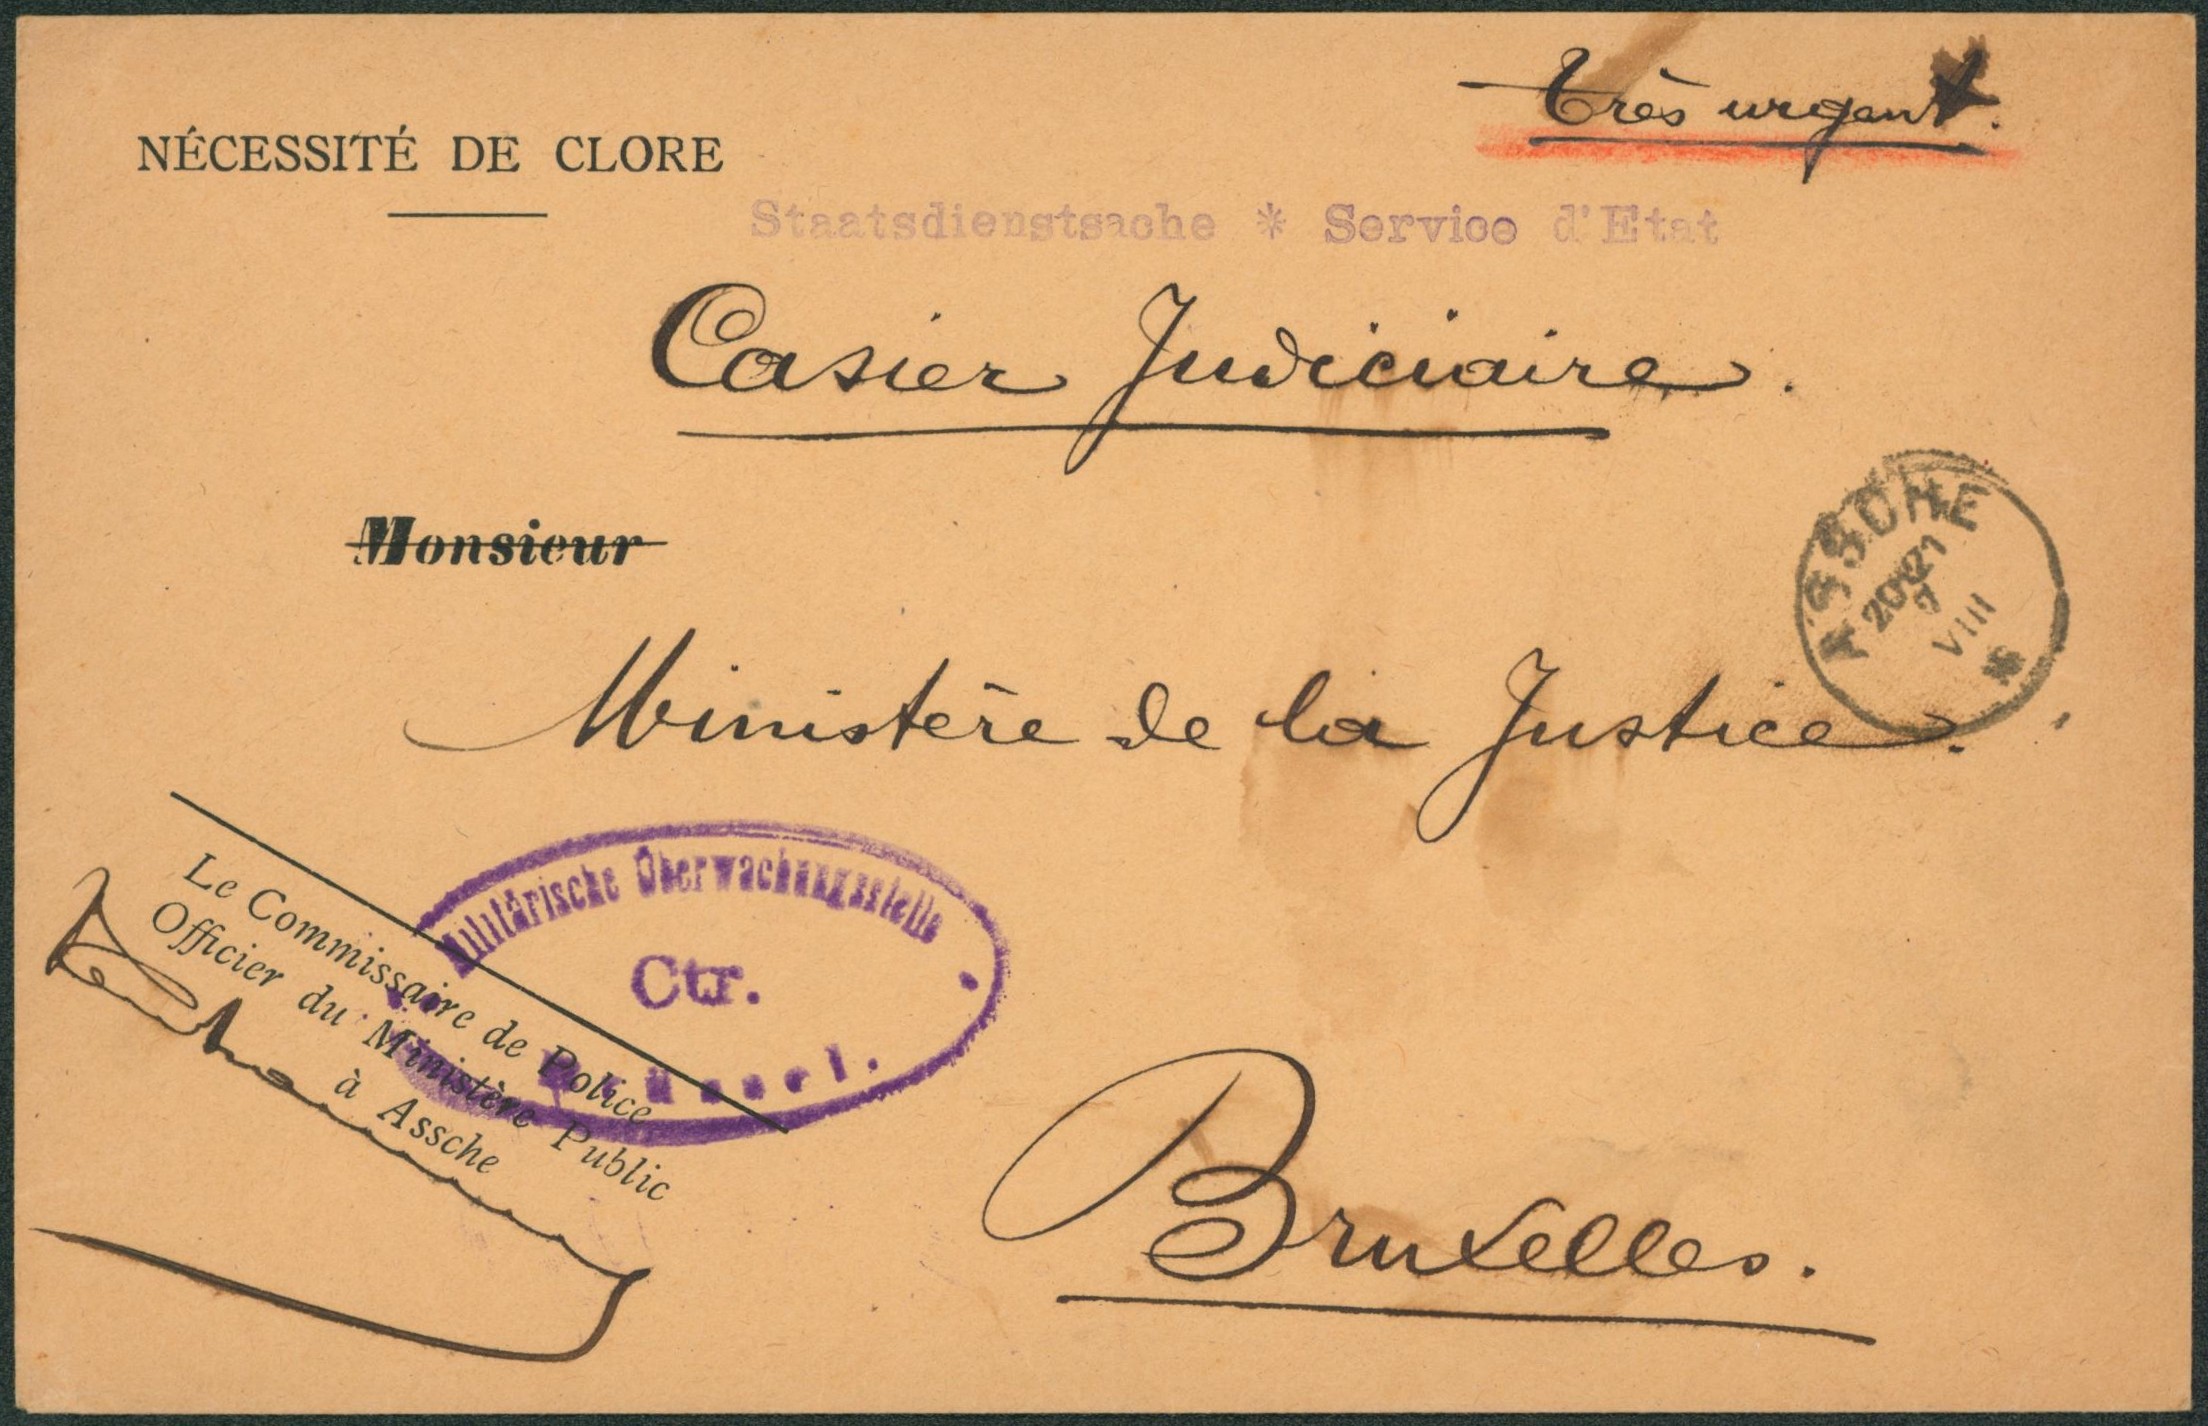 très urgent.
NÉCESSITÉ DE CLORE
Staatsdienstsache * Service d'Etat
Casier Judiciaire.
Monsieur
ASSCHE
VIII
Ministère de la Justice.
Militärische Überwachungsstelle
Ctr.
Brüssel.
Le Commissaire de Police
Officier du Ministère Public
à Assche
Bruxelles.